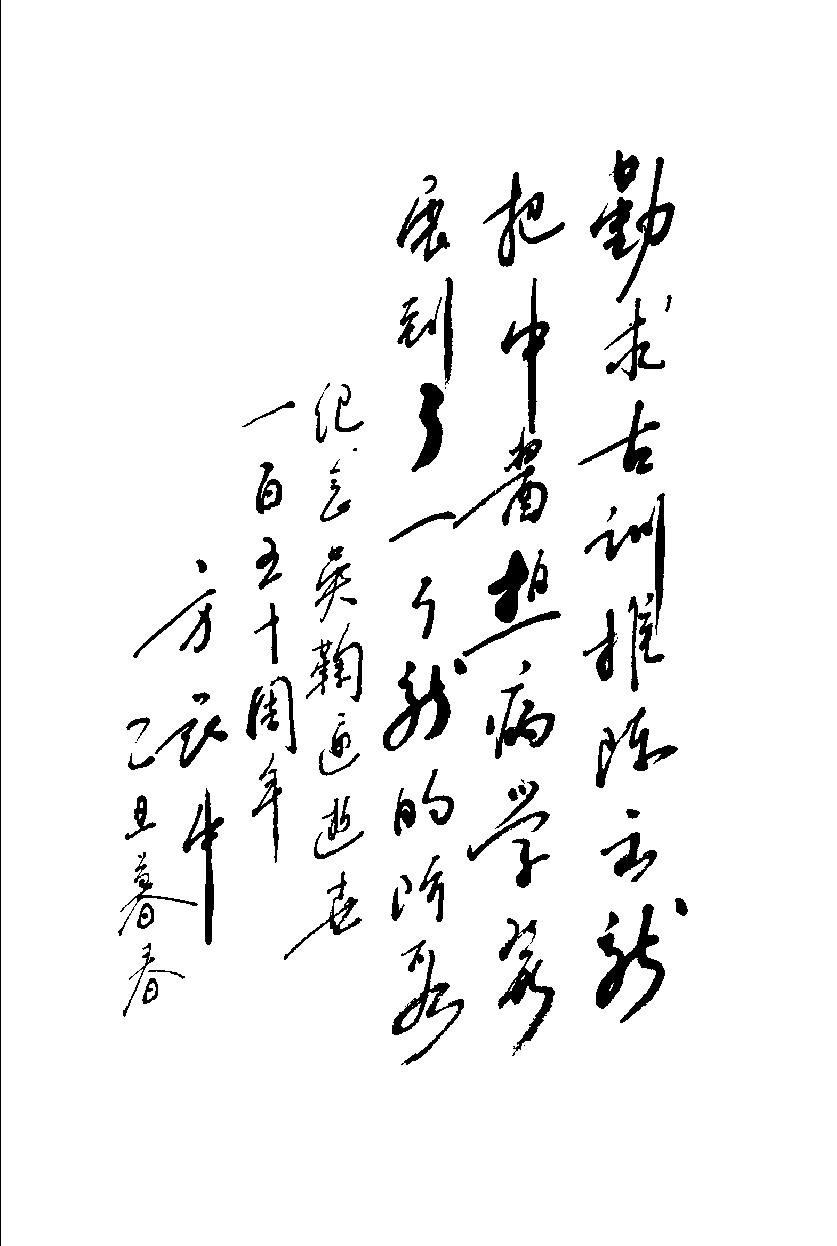 勤求古训推陈出新
把中医温病学发
展到了一个新的阶段
纪念吴鞠通逝世
一百五十周年
方药中
乙丑暮春